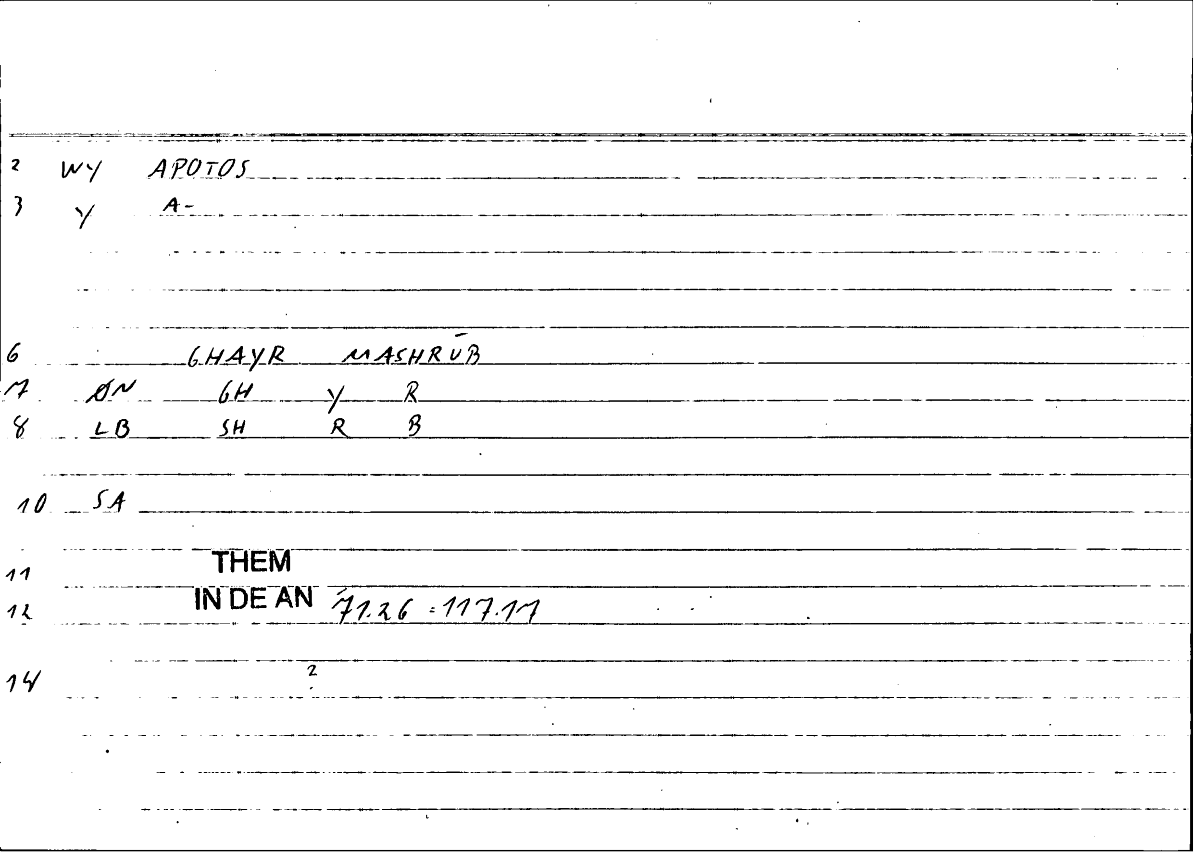 2 WY APOTOS
3 Y A-
6 GHAYR MASHRŪB
7 ØN GH Y R
8 LB SH R B
10 SA
11 THEM
12 IN DE AN 71.26 : 117.17
14 2